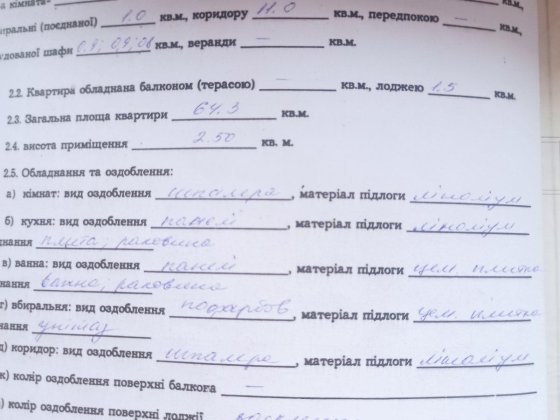 а кімната-
иральні (поєднаної) 1.0 кв.м, коридору 11.0 кв.м., передпокою — кв.м.,
удованої шафи 0,9; 0,9; 08 кв.м., веранди — кв.м.
2.2. Квартира обладнана балконом (терасою) — кв.м., лоджею 1.5 кв.м.
2.3. Загальна площа квартири 64.3 кв.м.
2.4. висота приміщення 2.50 кв. м.
2.5. Обладнання та оздоблення:
а) кімнат: вид оздоблення шпалера, матеріал підлоги ліноліум
б) кухня: вид оздоблення панелі, матеріал підлоги ліноліум
днання плита, раковина
в) ванна: вид оздоблення панелі, матеріал підлоги цем. плитка
нання ванна, раковина
г) вбиральня: вид оздоблення подфарбов, матеріал підлоги цем. плитка
нання унітаз
д) коридор: вид оздоблення шпалера, матеріал підлоги ліноліум
к) колір оздоблення поверхні балкога —
) колір оздоблення поверхні лоджії